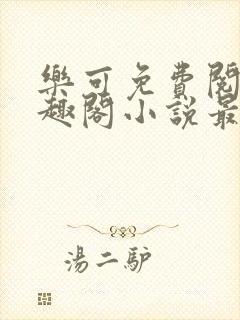 樂可免費閱
趣閣小說最
湯二驴